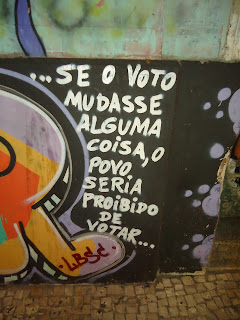 ...SE O VOTO
MUDASSE
ALGUMA
COISA, O
POVO
SERIA
PROIBIDO
DE
VOTAR...